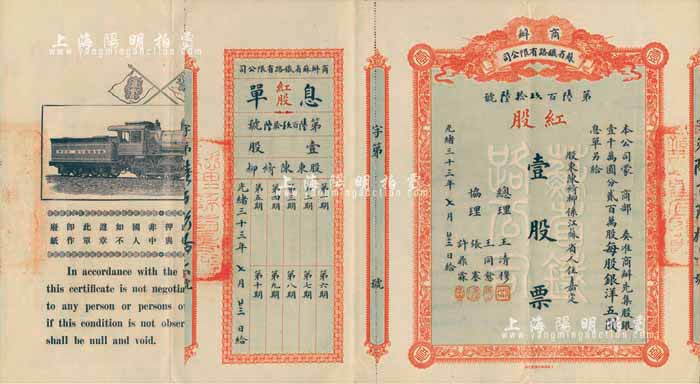 商辦
蘇省鐵路有限公司
第陸百玖拾陸號
紅股
本公司蒙 商部 奏准商辦先集股銀
壹千萬圓分貳百萬股每股銀洋五圓
息單另給
股東陳綺柳係江蘇省人住嘉定
壹股票
總理 王清穆
協理 王同愈
張謇
許鼎霖
光緒三十三年 月 日給
字第 號
商辦蘇省鐵路有限公司
紅股
息單
第陸百玖拾陸號
壹股
股東陳綺柳
第一期 第六期
第二期 第七期
第三期 第八期
第四期 第九期
第五期 第十期
光緒三十三年 月 日給
In accordance with the
this certificate is not negotia
to any person or persons o
if this condition is not obser
shall be null and void.
上海陽明拍賣
www.yangmingauction.com
上海陽明拍賣
www.yangmingauction.com
上海陽明拍賣
www.yangmingauction.com